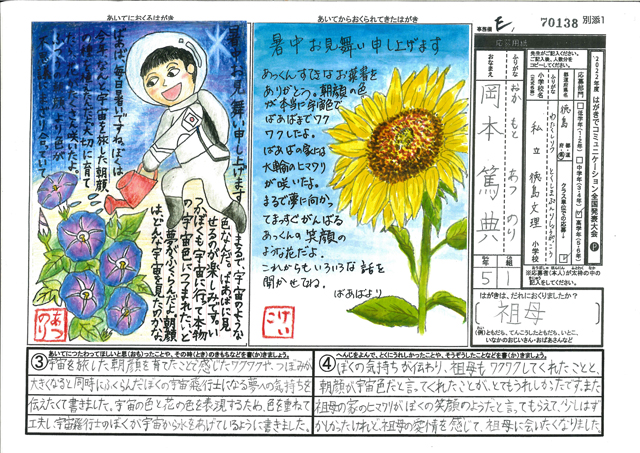 事務欄
E
70138
別添1
あいてにおくるはがき
あいてからおくられてきたはがき
舞い申し上げます
ばあば、毎日暑いですね。ぼくは
今年、なんと宇宙を旅した朝顔
大切に育て
さき咲いたよ。
まるで宇宙のような
色なんだ。ばあばに見
せるのが楽しみです。
ぼくも宇宙に行って本物
の宇宙色につつまれたいと
夢がふくらんだよ。朝顔
はどんな宇宙を見たのかな。
あつのり
暑中お見舞い申し上げます
あっくんすてきなお葉書を
ありがとう。朝顔の色
が本当に宇宙色で
ばあばまでワク
ワクしたよ。
ばあばの家には
大輪のヒマワリ
が咲いたよ。
まるで夢に向かって
まっすぐがんばる
あっくんの笑顔の
ような花だよ。
これからもいろいろな話を
聞かせてね。
ばあばより
けい
2022年度 はがきでコミュニケーション全国発表大会
応募用紙
先生がご記入ください。
ご記入後、人数分を
コピーしてください。
応募部門
低学年(1・2年)
中学年(3・4年)
高学年(5・6年)
都道府県名
徳島
都・道
府・県
クラス単位での応募
ふりがな
小学校名
(正式名称)
私立 徳島文理 小学校
ふりがな
おか もと あつ のり
おなまえ
岡本 篤典
学年
5
組
1
※応募者(本人)が太枠の中の
記入をしてください。
はがきは、だれにおくりましたか?
祖母
(例)ともだち、てんこうしたともだち、いとこ、
いなかのおじいさん・おばあさんなど
③ あいてにつたわってほしいと思(おも)ったことや、その時(とき)のきもちなどを書(か)きましょう。
宇宙を旅した、朝顔を育てたことで感じたワクワクや、つぼみが
大きくなると同時にふくらんだぼくの宇宙飛行士になる夢の気持ちを
伝えたくて書きました。宇宙の色と花の色を表現するため、色を重ねて
工夫し、宇宙飛行士のぼくが宇宙から水をあげているように書きました。
④ へんじをよんで、とくにうれしかったことや、そうぞうしたことなどを書(か)きましょう。
ぼくの気持ちが伝わり、祖母もワクワクしてくれたことと、
朝顔が宇宙色だと言ってくれたことが、とてもうれしかったです。また
祖母の家のヒマワリがぼくの笑顔のようだと言ってもらえて、少しはず
かしかったけれど、祖母の愛情を感じて、祖母に会いたくなりました。